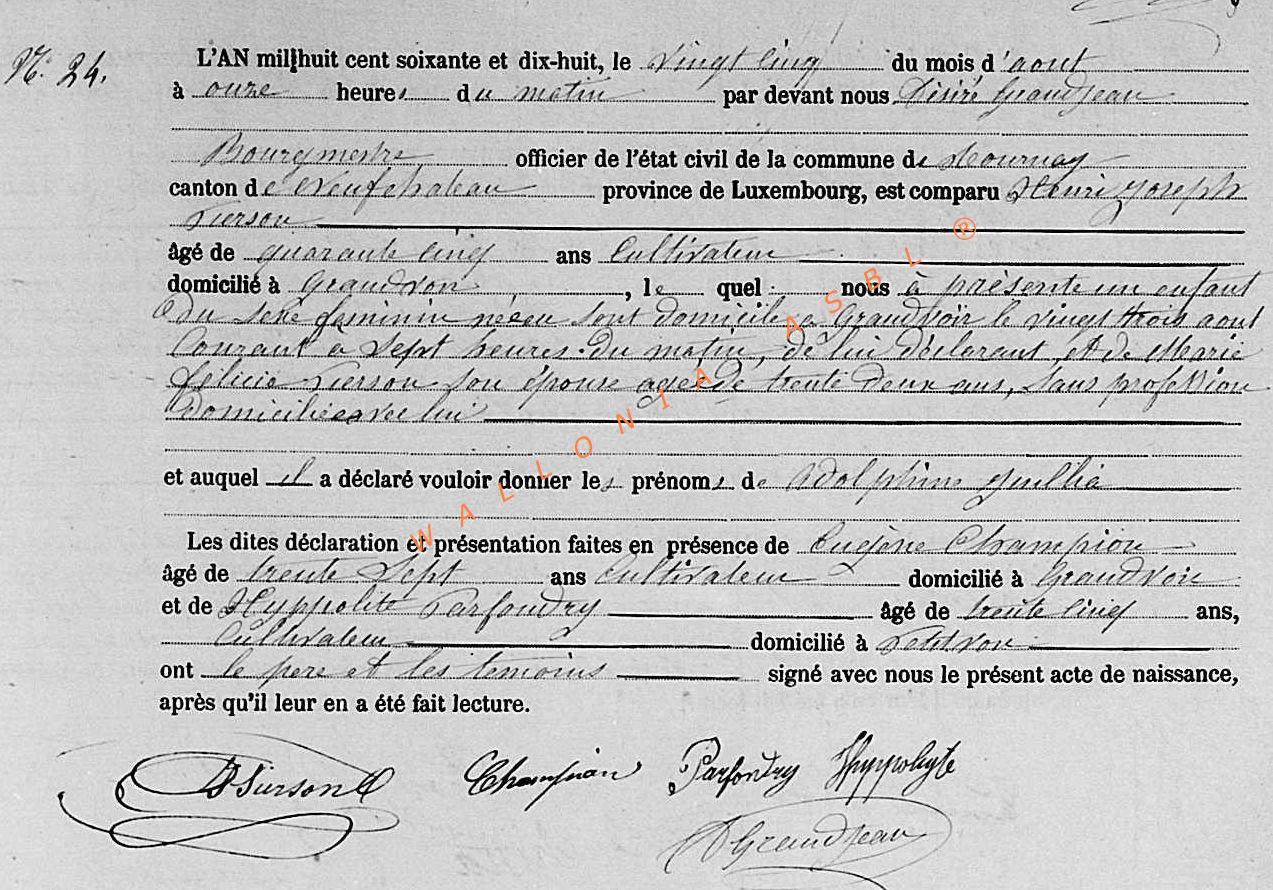 N° 24.
L'AN mil huit cent soixante et dix-huit, le vingt cinq du mois d'aout
à onze heures du matin par devant nous Désiré Grandjean
Bourgmestre officier de l'état civil de la commune de Tournay
canton de Neufchateau province de Luxembourg, est comparu Henri Joseph
Pierson
âgé de quarante cinq ans Cultivateur
domicilié à Grandvoir, lequel nous à présente un enfant
du sexe feminin né en sont domicile a Grandvoir le vingt trois aout
Courant a sept heures du matin, de lui déclarant et de Marie
felicie Pierson son épouse agée de trente deux ans, sans profession
Domiciliée avec lui
et auquel il a déclaré vouloir donner les prénoms de Adolphine Juillia
Les dites déclaration et présentation faites en présence de Eugène Champion
âgé de trente sept ans Cultivateur domicilié à Grandvoir
et de Hyppolite Parfondry âgé de trente cinq ans,
Cultivateur domicilié à Petitvoir
ont le pere et les temoins signé avec nous le présent acte de naissance,
après qu'il leur en a été fait lecture.
Pierson Champion Parfondry Hyppolyte
D Grandjean
WALLONIA ASBL ®